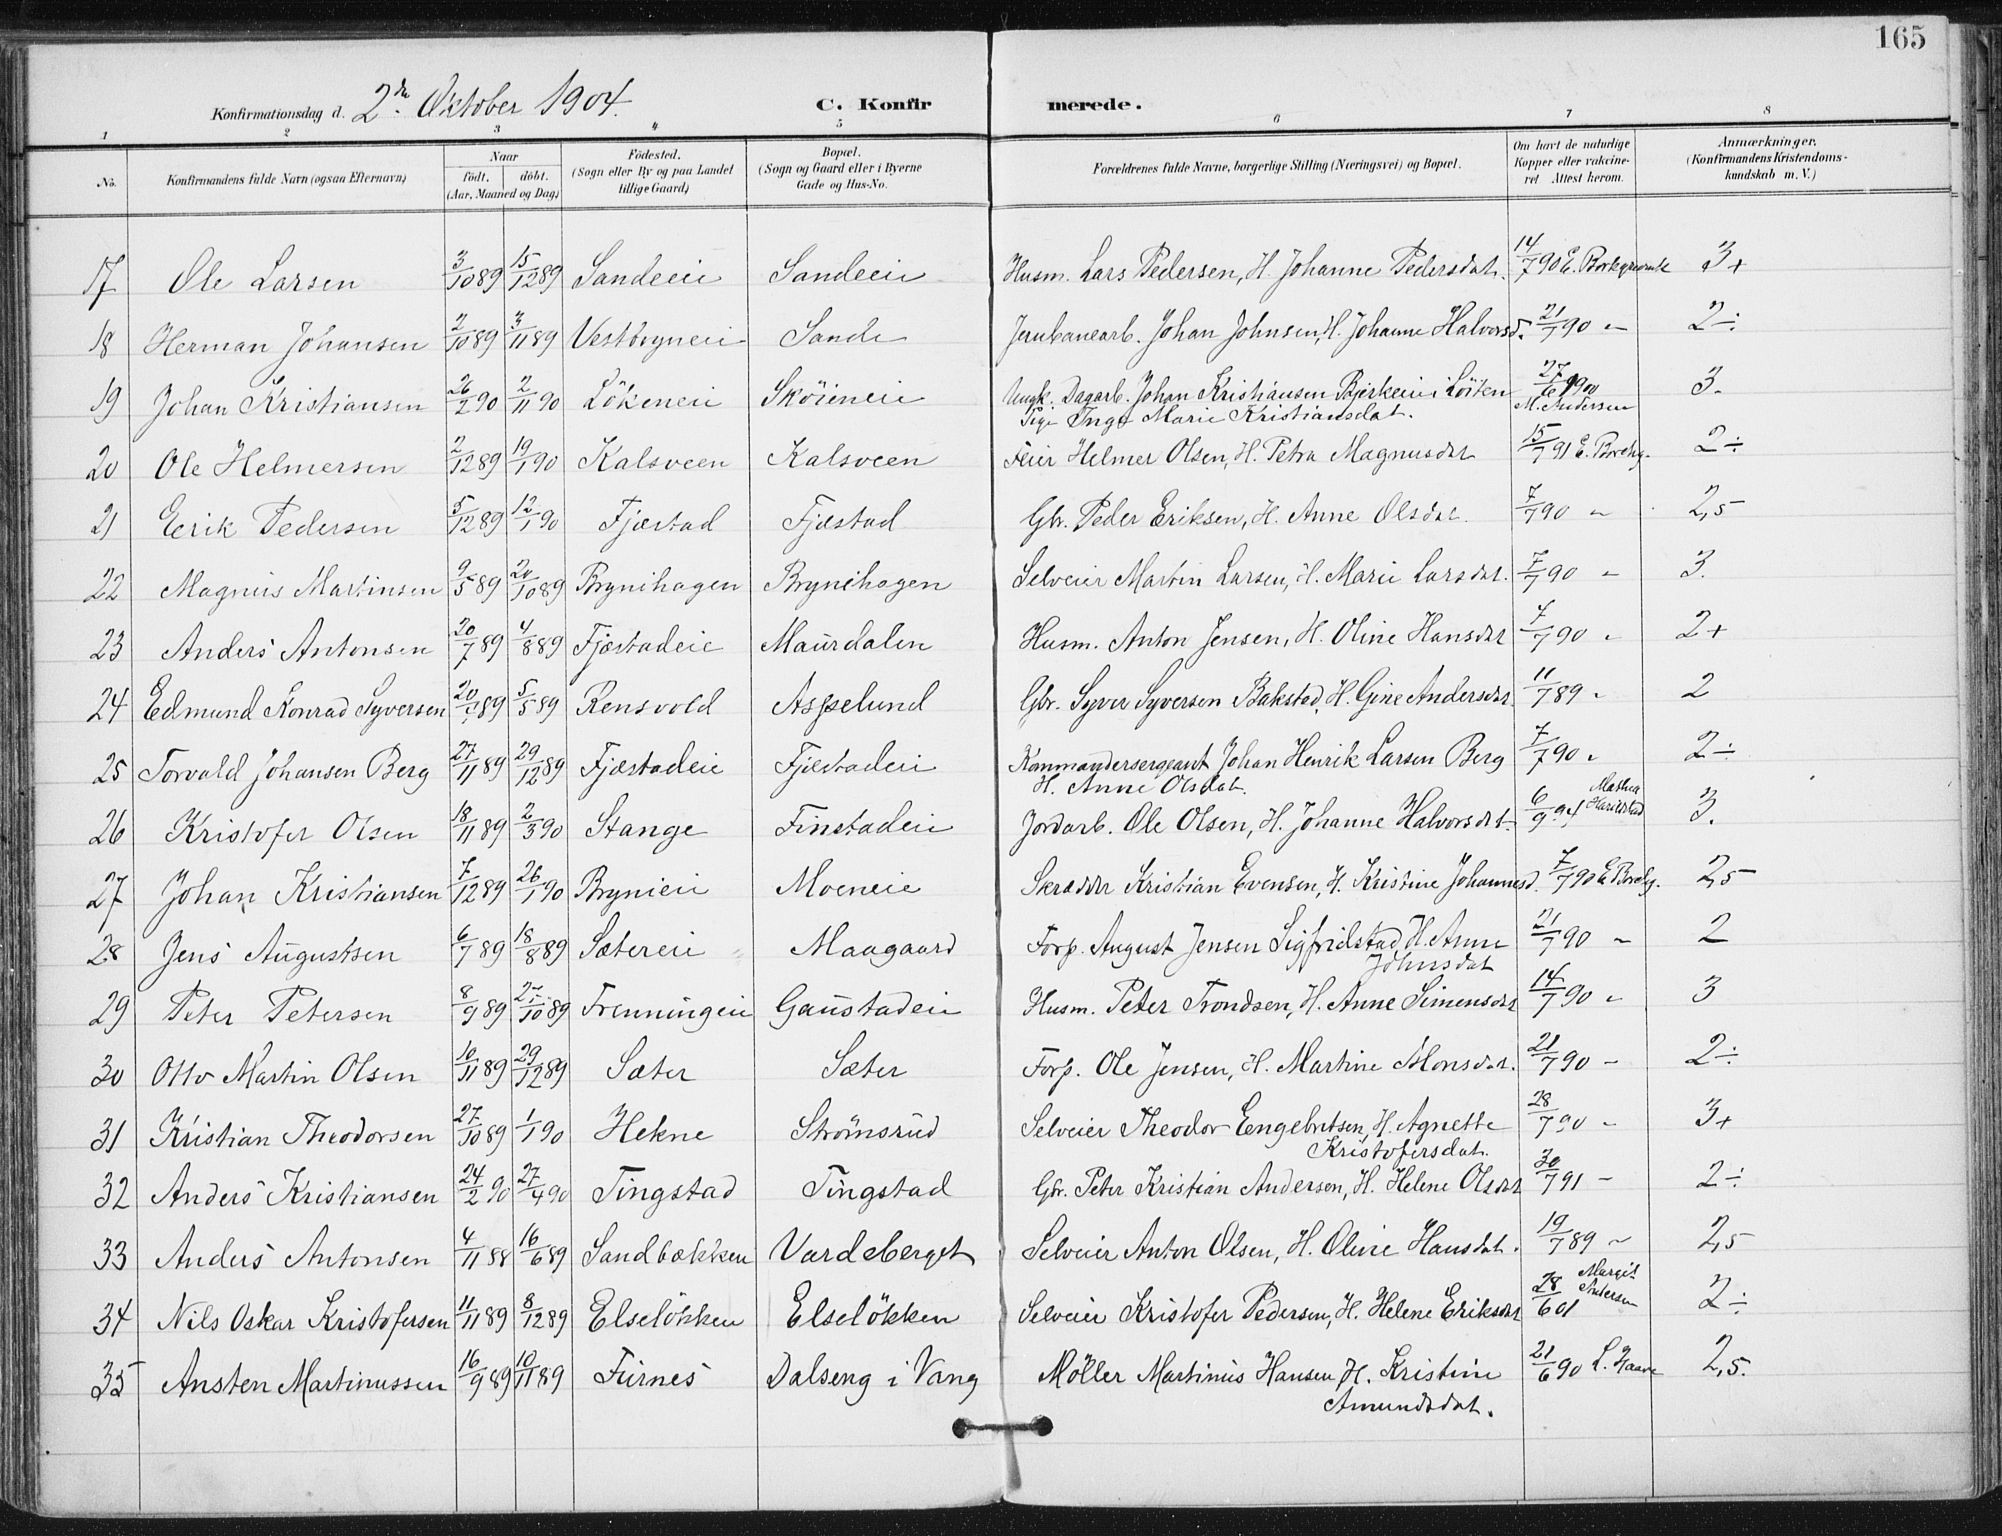 165
Konfirmationsdag d. 2den Oktober 1904. C. Konfir merede.
1 2 3 4 5 6 7 8
No. Konfirmandens fulde Navn (ogsaa Efternavn) Naar født. døbt. (Aar, Maaned og Dag) Fødested. (Sogn eller By og paa Landet tillige Gaard) Bopæl. (Sogn og Gaard eller i Byerne Gade og Hus-No. Forældrenes fulde Navne, borgerlige Stilling (Næringsvei) og Bopæl. Om havt de naturlige Kopper eller vakcineret Attest herom. Anmerkninger. (Konfirmandens Kristendomskundskab m. V.)
17 Ole Larsen 3/10 89 15/12 89 Sandeeie Sandeeie Husm. Lars Pedersen, H. Johanne Pedersdat. 14/7 90 E. 3+
18 Herman Johansen 2/10 89 3/11 89 Vestbryneie Sande Jernbanearb. Johan Johnsen, H. Johanne Halvorsd. 21/7 90 " 2÷
19 Johan Kristiansen 26/2 90 2/11 90 Lökeneie Skøieneie Ungk. Dagarb. Johan Kristiansen Bjerkeeie i Löiten 27/6 1901 3.
Pige Inga Marie Kristiansdat. M. Andersen
20 Ole Helmersen 2/12 89 19/1 90 Kalsveen Kalsveen Feier Helmer Olsen, H. Petra Magnusdat 15/7 91 E. Borchg. 2÷
21 Eerik Pedersen 5/12 89 12/1 90 Fjæstad Fjæstad Gbr. Peder Eriksen, H. Anne Olsdat. 7/7 90 " 2,5
22 Magnus Martinsen 9/5 89 20/10 89 Brynihagen Brynihagen Selveier Martin Larsen, H. Marie Larsdat. 7/7 90 " 3.
23 Anders Antonsen 20/7 89 4/8 89 Fjæstadeie Maurdalen Husm. Anton Jensen, H. Oline Hansdat 7/7 90 " 2+
24 Edmund Konrad Syversen 89 5/5 89 Rensvold Aspelund Gbr. Syver Syversen Bakstad, H. Gine Andersdat. 11/7 89 " 2
25 Torvald Johansen Berg 27/11 89 29/12 89 Fjæstadeie Fjæstadeie Kommandersergeant Johan Henrik Larsen Berg 7/7 90 " 2÷
H. Anne Olsdat.
26 Kristofer Olsen 18/11 89 2/3 90 Stange Finstadeie Jordarb. Ole Olsen, H. Johanne Halvorsdat. 6/9 94 Mathea 3.
27 Johan Kristiansen 7/12 89 26/1 90 Brynieie Moeneie Skrædder Kristian Evensen, H. Kristine Johannesd. 7/7 90 E. Borchg. 2,5
28 Jens Augustsen 6/7 89 18/8 89 Sætereie Maagaard Forp. August Jensen Sigfridstad H. Anne 21/7 90 " 2
Johnsdat
29 Peter Petersen 8/9 89 27/10 89 Frenningeie Gaustadeie Husm. Peter Trondsen, H. Anne Simensdat 14/7 90 " 3
30 Otto Martin Olsen 10/11 89 29/12 89 Sæter Sæter Forp. Ole Jensen, H. Martine Monsdat. 21/7 90 " 2÷
31 Kristian Theodorsen 27/10 89 1/1 90 Hekne Strömsrud Selveier Theodor Eengebretsen, H. Agnette 28/7 90 " 3+
Kristofersdat.
32 Anders Kristiansen 24/2 90 27/4 90 Tingstad Tingstad Gbr. Peter Kristian Andersen, H. Helene Olsdat 30/7 91 " 2÷
33 Anders Antonsen 4/11 88 16/6 89 Sandbækken Vardeberget Selveier Anton Olsen, H. Oline Hansdat. 19/7 89 " 2,5
34 Nils Oskar Kristofersen 11/11 89 8/12 89 Elselökken Elselökken Selveier Kristofer Pedersen, H. Helene Eriksdat 28/6 01 Margit Andersen 2÷
35 Ansten Martinussen 16/9 89 10/11 89 Furnes Dalseng i Vang Möller Martinus Hansen, H. Kristine 21/6 90 L. 2,5.
Amundsdat.